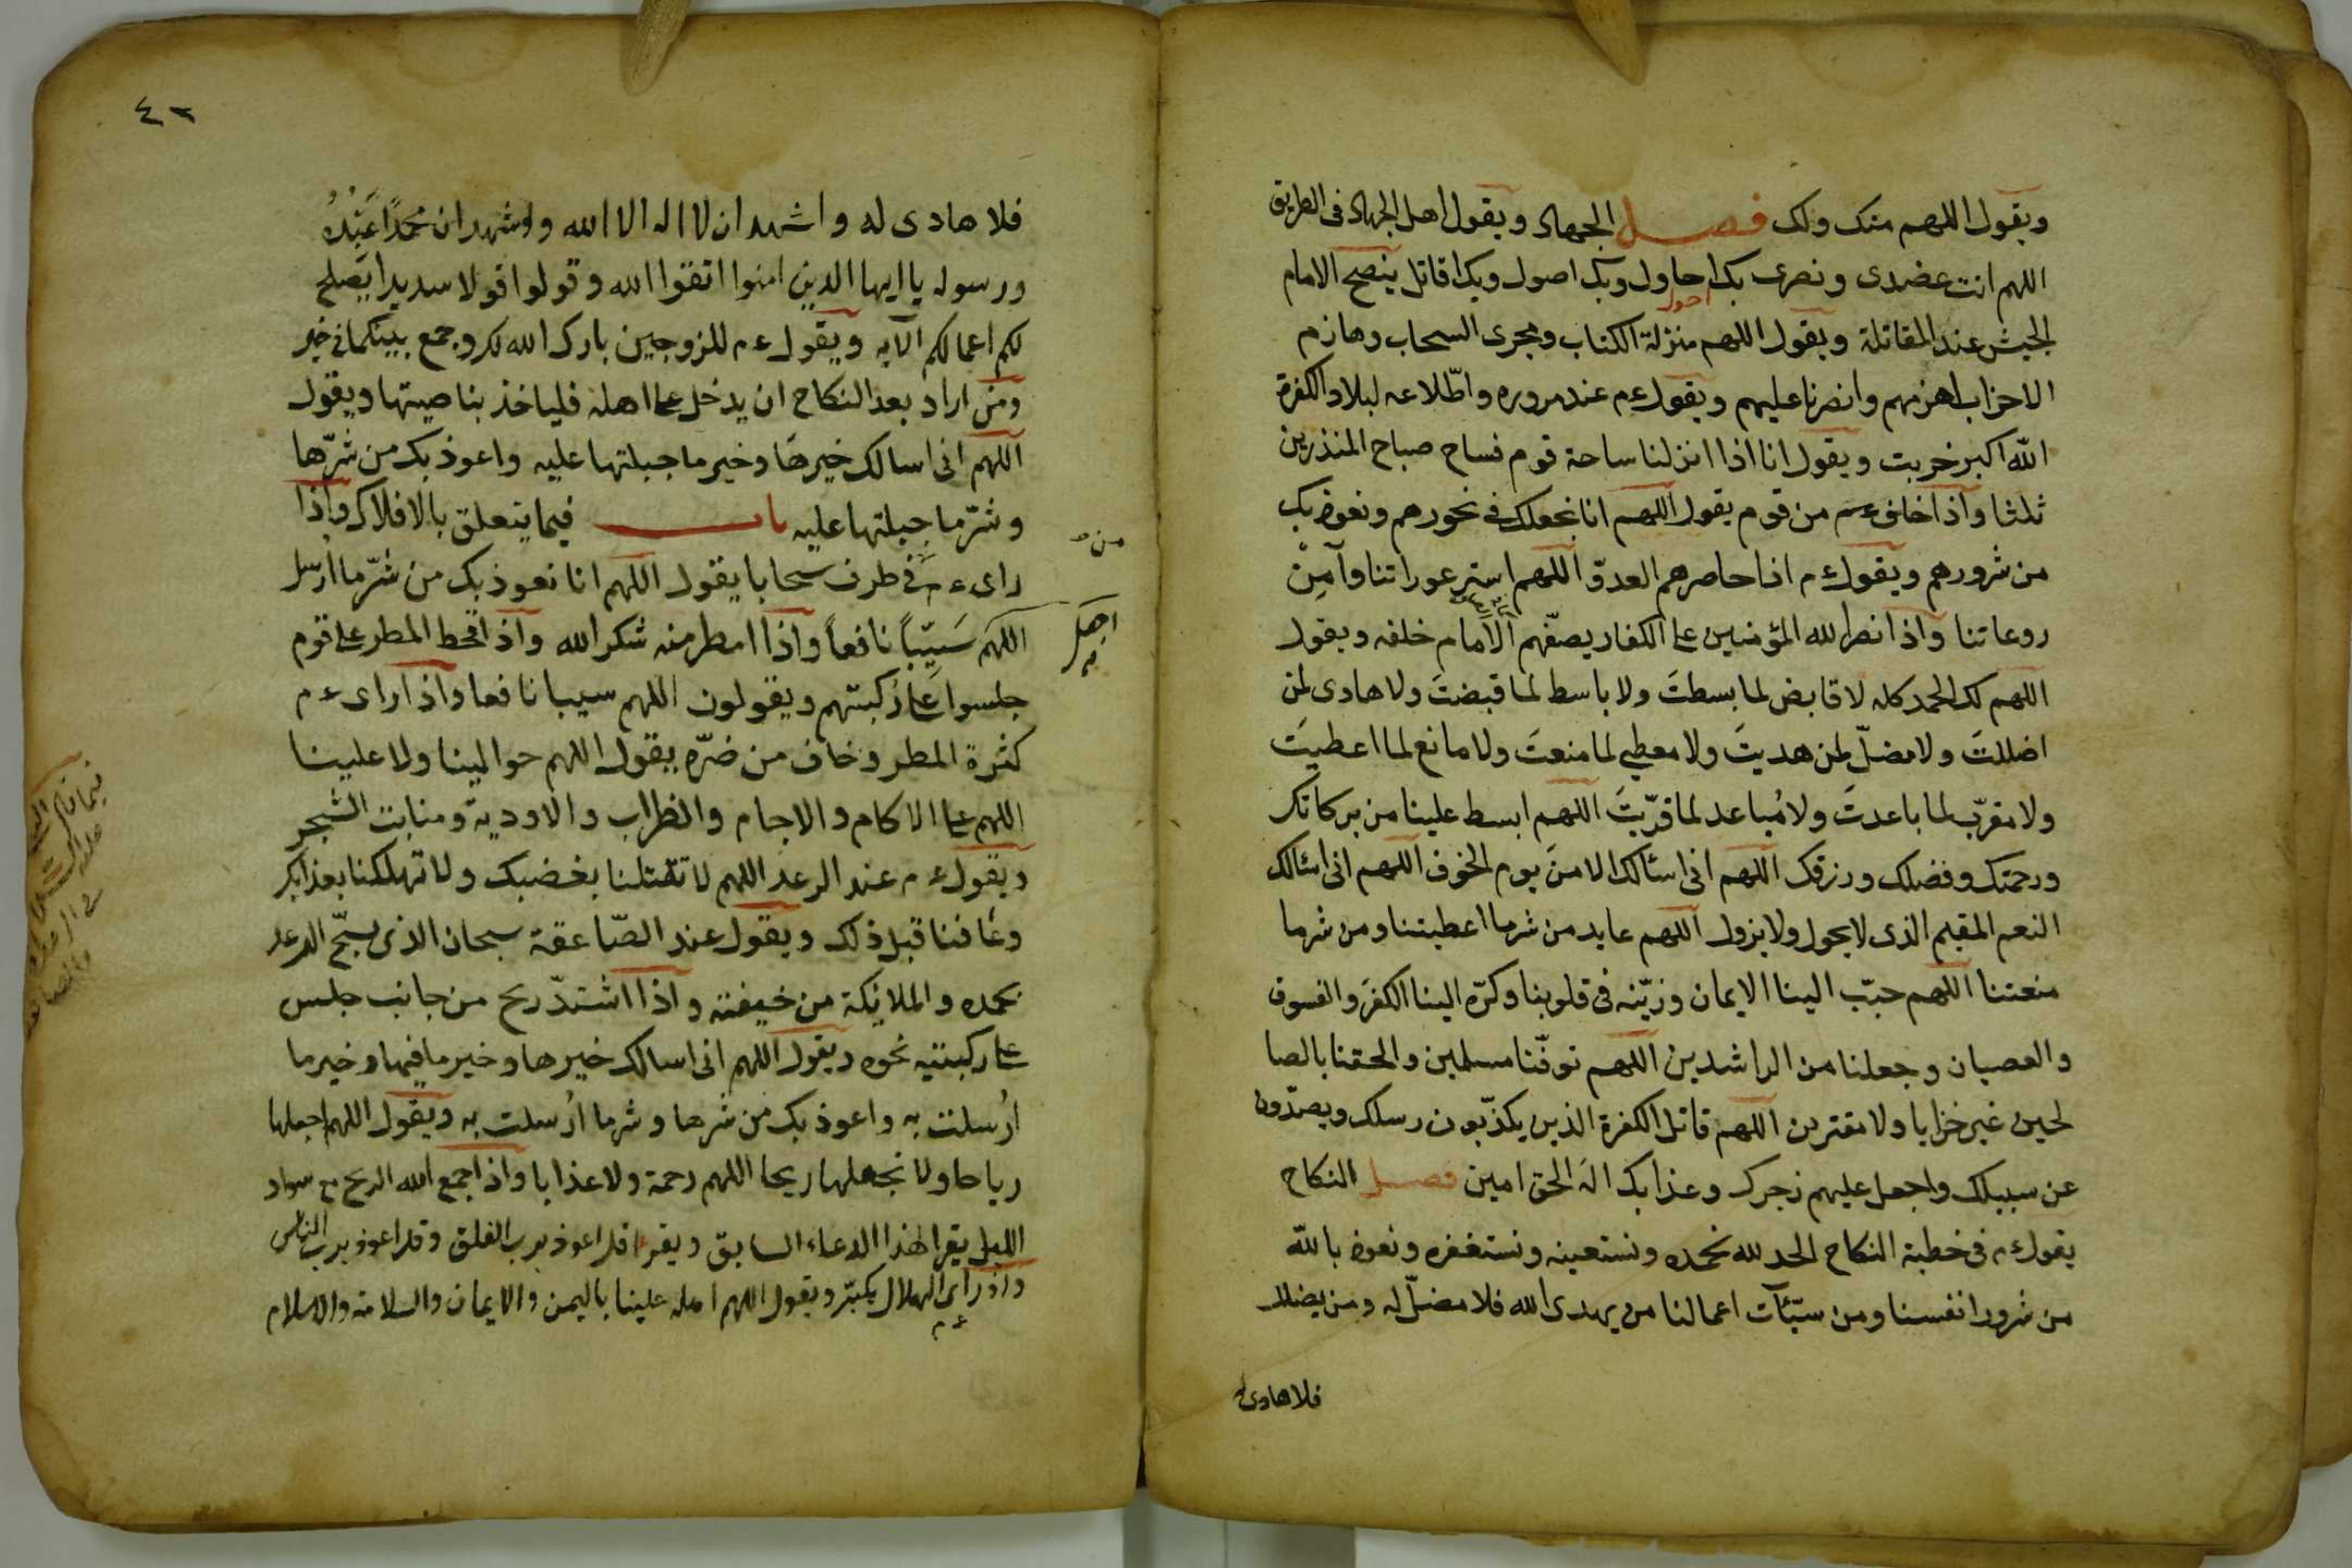 ويقول اللهم منك ولك فصل الجهاد ويقول اهل الجهاد فى الطريق
اللهم انت عضدى ونصرى بك احاول وبك اصول وبك اقاتل ينصح الامام
احول
الجيش عند المقاتلة ويقول اللهم منزلة الكتاب ومجرى السحاب وهازم
الاحزاب اهزمهم وانصرنا عليهم ويقول عم عند مروره واطّلاعه لبلاد الكفرة
الله اكبر خربت ويقول انا اذا انزلنا ساحة قوم فساح صباح المنذرين
ثلثا واذا خاف عم من قوم يقول اللهم انا نجعلك فى نحورهم ونعوذ بك
من شرورهم ويقول عم اذا حاصرهم العدوّ اللهم استر عوراتنا وآمِنْ
روعاتنا واذا نصر الله المؤمنين على الكفار يصفّهم الامام خلفه ويقول
اللهم لك الحمد كله لا قابض لما بسطتَ ولا باسط لما قبضتَ ولا هادى لمن
اضللتَ ولا مضلّ لمن هديتَ ولا معطي لما منعتَ ولا مانع لما اعطيتَ
ولا مقرّب لما باعدتَ ولا مُباعد لما قرّبتَ اللهم ابسط علينا من بركاتك
ورحمتك وفضلك ورزقك اللهم انى اسئالك الامنَ يوم الخوف اللهم انى اسئالك
النعم المقيم الذى لا يحول ولا يزول اللهم عايد من شر ما اعطيتنا ومن شر ما
منعتنا اللهم حبّب الينا الايمان وزيّنه فى قلوبنا وكرّه الينا الكفرَ والفسوق
والعصيان وجعلنا من الراشدين اللهم توفّنا مسلمين والحقنا بالصا
لحين غير خزايا ولا مفترين اللهم قاتل الكفرة الذين يكذّبون رسلك ويصدّون
عن سبيلك واجعل عليهم زجرك وعذابك الهَ الحق امين فصل النكاح
يقول عم فى خطبة النكاح الحد لله نحمده ونستعينه ونستغفره ونعوذ بالله
من شرور انفسنا ومن سيّئآت اعمالنا من يهدى الله فلا مضلّ له ومن يضلل
فلا هادى له
٤٢
فلا هادى له واشهد ان لا اله الا الله واشهد ان محمدًا عَبْدُهُ
ورسوله يا ايها الذين امنوا اتقوا الله وقولوا قولا سديدا يصلح
لكم اعمالكم الآيه ويقول عم للزوجين بارك الله لك وجمع بينكما فى خير
ومن اراد بعد النكاح ان يدخل على اهله فلياخذ بناصيتها ويقول
اللهم انى اسالك خيرها وخير ما جبلتها عليه واعوذ بك من شرّها
وشرّ ما جبلتها عليه باب فيما يتعلق بالافلاك واذا
راى عم فى طرف سحابا يقول اللهم انا نعوذ بك من شرّ ما ارسل
من
اللهم سَيّباً نافعاً واذا امطر منه شكر الله واذ اقحط المطر على قوم
اجعل
به
جلسوا على رُكبتهم ويقولون اللهم سيبا نافعا واذا راى عم
كثرة المطر وخاف من ضرّه يقول اللهم حوالينا ولا علينا
اللهم على الاكام والاجام والظراب والاودية ومنابت الشجر
ويقول عم عند الرعد اللهم لا تقتلنا بغضبك ولا تهلكنا بعذابك
وعافنا قبل ذلك ويقول عند الصّاعقة سبحان الذى يسبّح الرعد
بحمده والملائكة من خيفته واذا اشتدّ ريح من جانب جلس
على ركبتيه نحوه ويقول اللهم انى اسالك خيرها وخير ما فيها وخير ما
اُرسلت به واعوذ بك من شرها وشر ما اُرسلت به ويقول اللهم اجعلها
رياحا ولا تجعلها ريحا اللهم رحمة ولا عذابا واذا جمع الله الريح مع سواد
الليل يقرا لهذا الدعاء السابق ويقرا قل اعوذ برب الفلق وقل اعوذ برب الناس
واذ راى الهلال يكبّر ويقول اللهم اهله علينا باليمن والايمان والسلامة والاسلام
عم